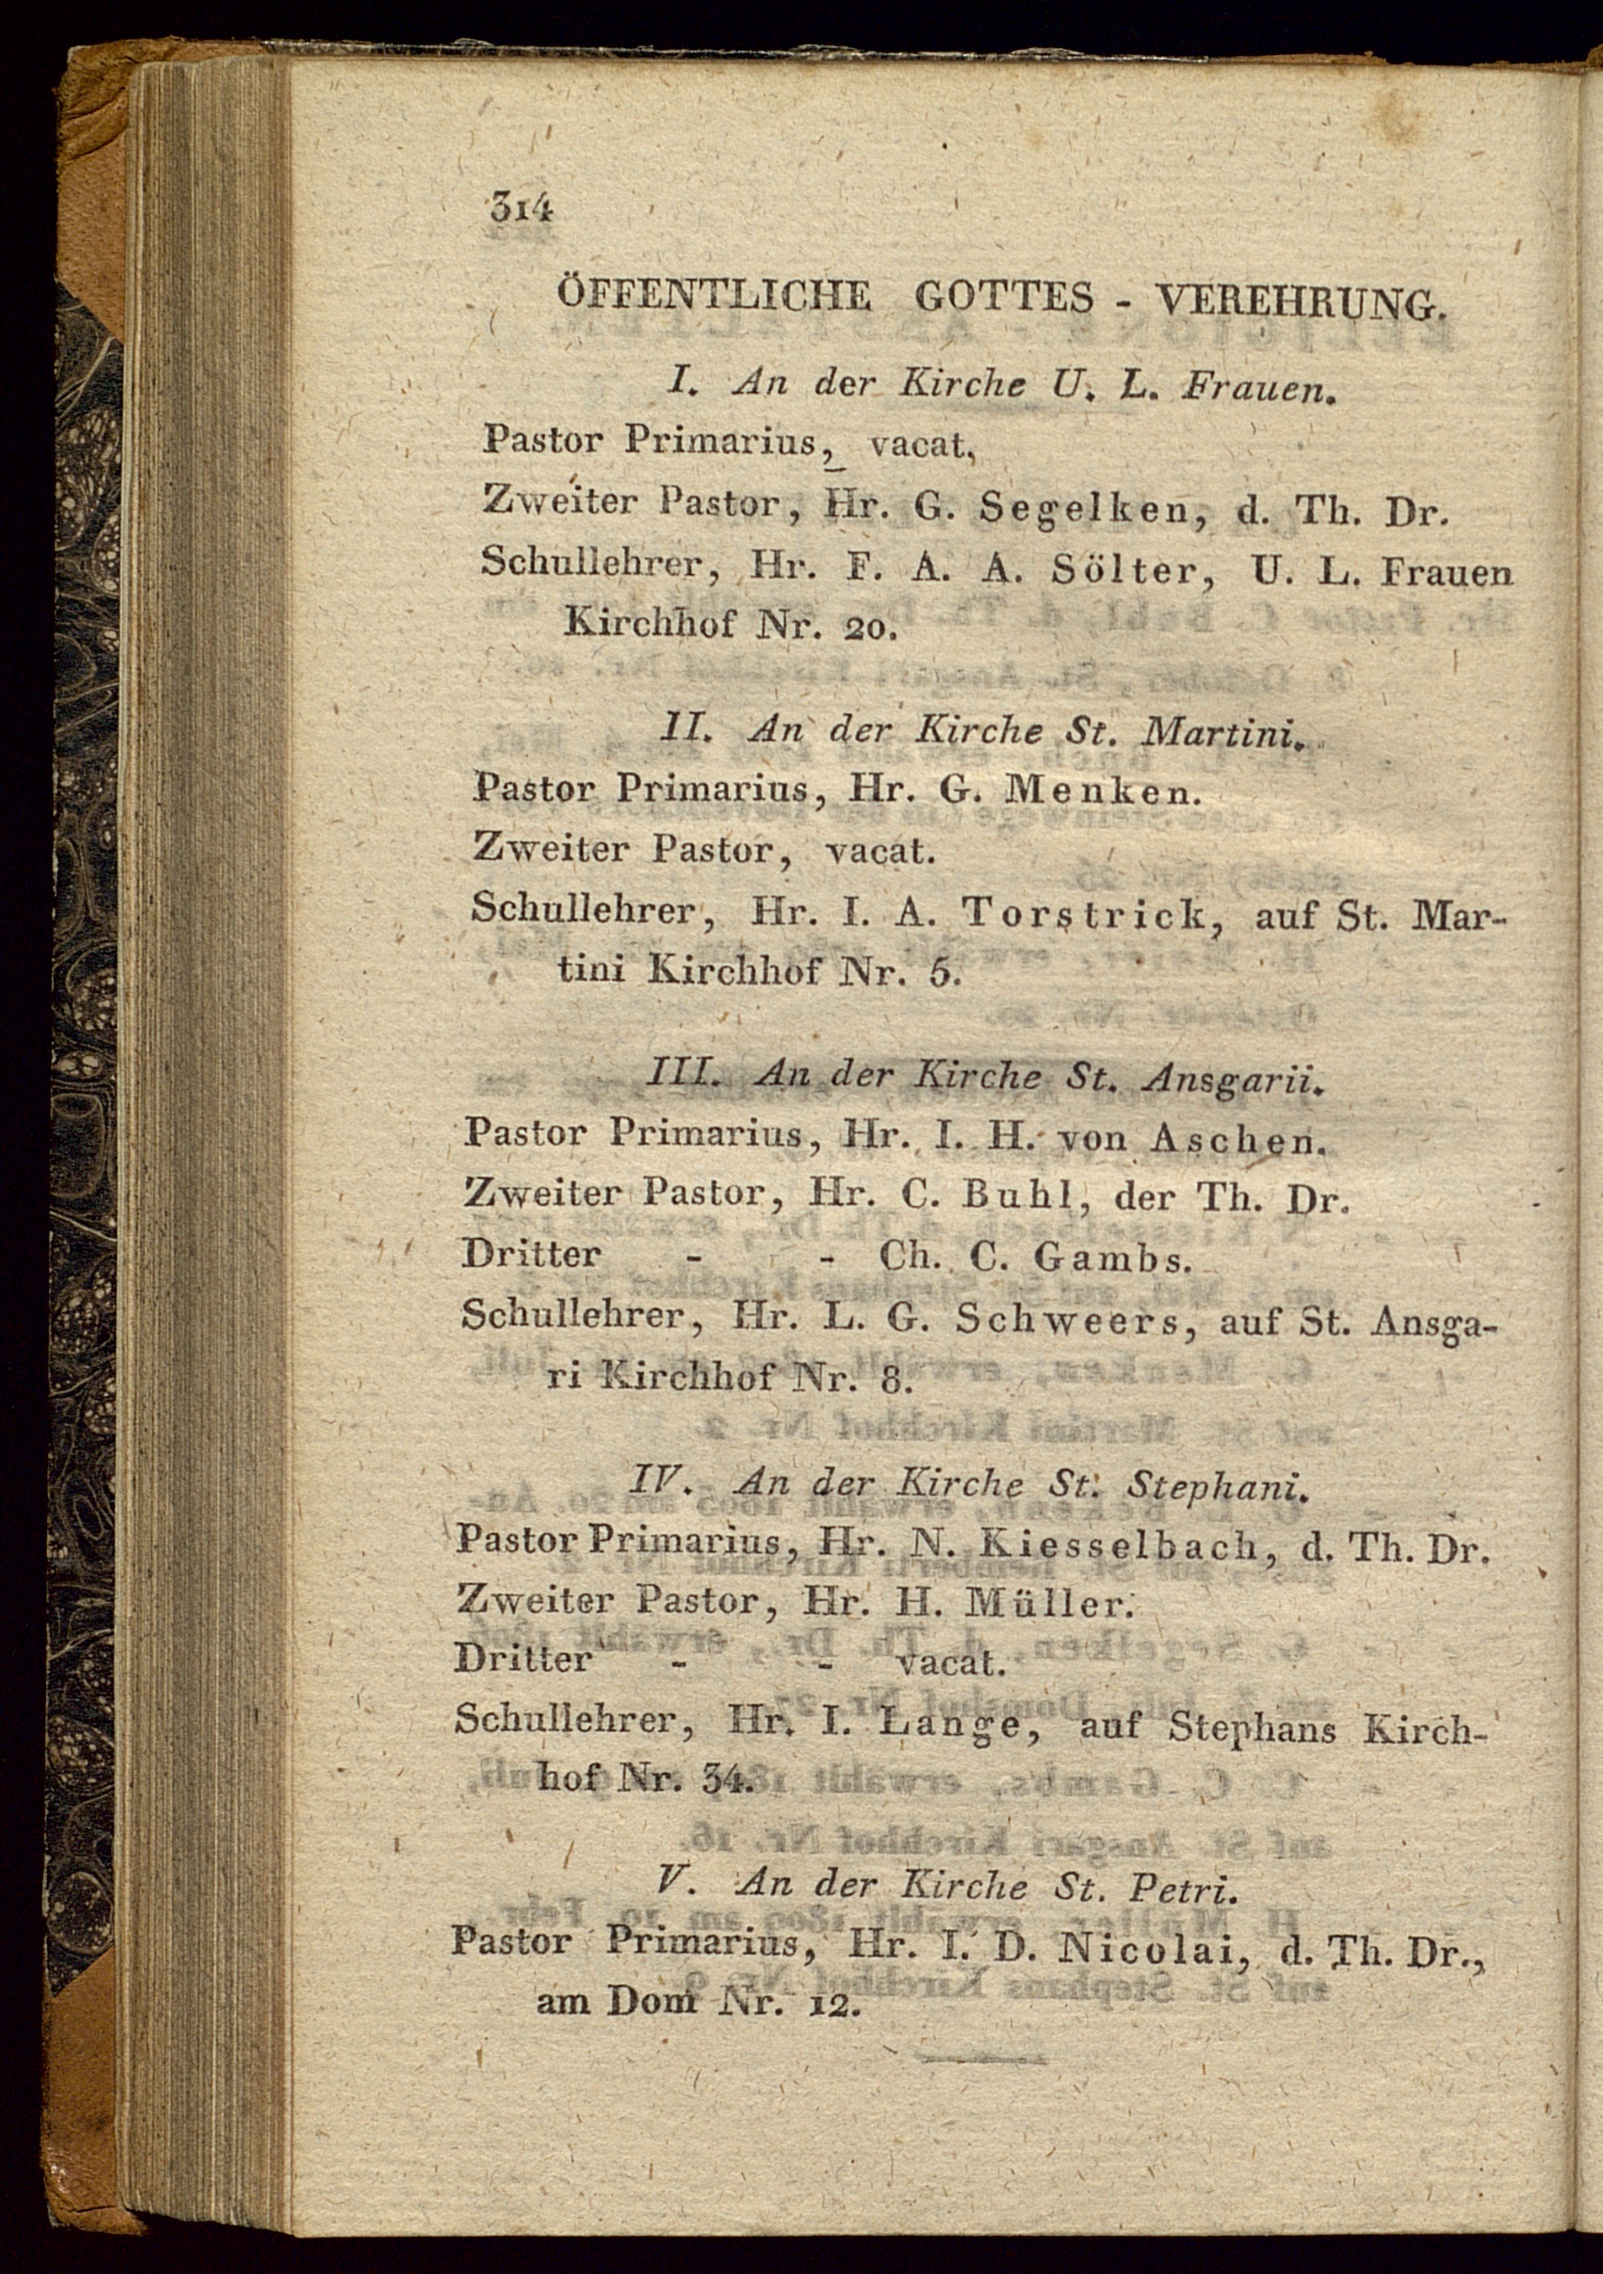 314
ÖFFENTLICHE GOTTES - VEREHRUNG.
I. An der Kirche U. L. Frauen.
Pastor Primarius, vacat.
Zweiter Pastor, Hr. G. Segelken, d. Th. Dr.
Schullehrer, Hr. F. A. A. Sölter, U. L. Frauen
Kirchhof Nr. 20.
II. An der Kirche St. Martini.
Pastor Primarius, Hr. G. Menken.
Zweiter Pastor, vacat.
Schullehrer, Hr. I. A. Torstrick, auf St. Mar-
tini Kirchhof Nr. 5.
III. An der Kirche St. Ansgarii.
Pastor Primarius, Hr. I. H. von Aschen.
Zweiter Pastor, Hr. C. Buhl, der Th. Dr.
Dritter - - Ch. C. Gambs.
Schullehrer, Hr. L. G. Schweers, auf St. Ansga-
ri Kirchhof Nr. 8.
IV. An der Kirche St. Stephani.
Pastor Primarius, Hr. N. Kiesselbach, d. Th. Dr.
Zweiter Pastor, Hr. H. Müller.
Dritter - - vacat.
Schullehrer, Hr. I. Lange, auf Stephans Kirch-
hof Nr. 34.
V. An der Kirche St. Petri.
Pastor Primarius, Hr. I. D. Nicolai, d. Th. Dr.,
am Dom Nr. 12.